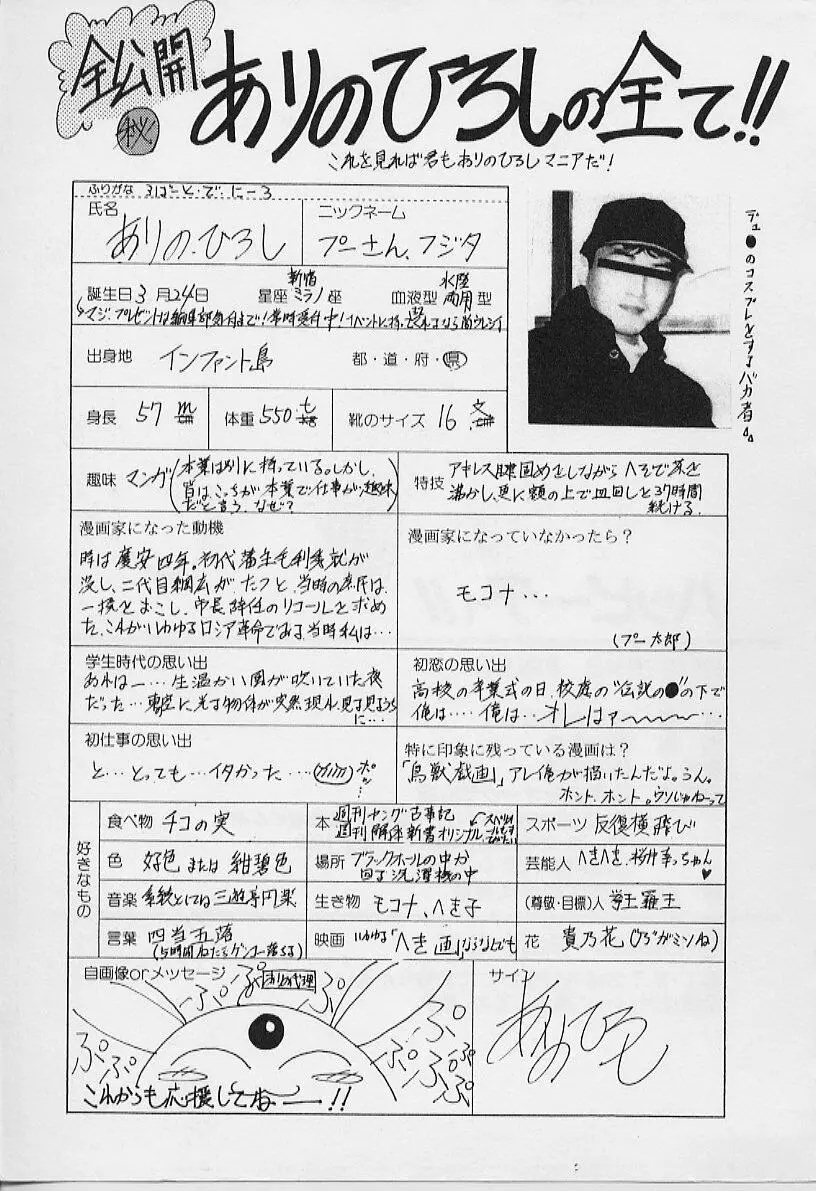 全公開
㊙
ありのひろしの全て!!
これを見れば君もありのひろしマニアだ!
ふりがな ろばーと・で・にーろ
氏名
ありの.ひろし
ニックネーム
プーさん、フジタ
誕生日3月24日
星座 新宿ミラノ座
血液型 水陸両用型
マジ.プレゼントは編集部気付まで!常時受付中!イベントに持
出身地 インファント島
都・道・府・県
身長 57 m
体重 550 t
靴のサイズ 16 文
デュ●のコスプレをするバカ者
趣味 マンガ(本業は別に持っている。しかし、
皆はこっちが本業で仕事が趣味
だと言う、なぜ?
特技 アキレス腱固めをしながらへそで茶を
沸かし、更に額の上で皿回しを37時間
続ける.
漫画家になった動機
時は慶安四年。初代藩主毛利秀就が
没し、二代目綱広がたつと、当時の庶民は、
一揆をおこし、市長辞任のリコールを求め
た、これがいわゆるロシア革命である、当時私は…
漫画家になっていなかったら?
モコナ…
(プー太郎)
学生時代の思い出
あれは一…生温かい風が吹いていた夜
だった…東空に光る物体が突然現れ、見る見るうち
に…
初恋の思い出
高校の卒業式の日、校庭の"伝説の●"の下で
俺は……俺は…オレはァ〜〜〜…
初仕事の思い出
と…とっても…イタかった…(ポッ…
特に印象に残っている漫画は?
「鳥獣戯画」、アレ俺が描いたんだよ。うん。
ホント、ホント。ウソじゃねーって
好きなもの
食べ物 チコの実
本 週刊ヤング古事記
週刊解体新書オリジナル
スポーツ 反復横飛び
色 好色または紺碧色
場所 ブラックホールの中か
回る洗濯機の中
芸能人 へきへき、桜井幸っちゃん♥
音楽 系統としては三遊亭円楽
生き物 モコナ、へき子
(尊敬・目標)人 拳王羅王
言葉 四当五落
(5時間ねたらゲンコー落ちる)
映画 いわゆる「へき画」ならなんでも
花 貴乃花(ヒゲがミソね)
自画像orメッセージ
ありの代理
ぷぷぷ
ぷぷ
ぷぷ
ぷぷ
ぷぷぷぷ
これからも応援してねー!!
サイン
ありのひろし